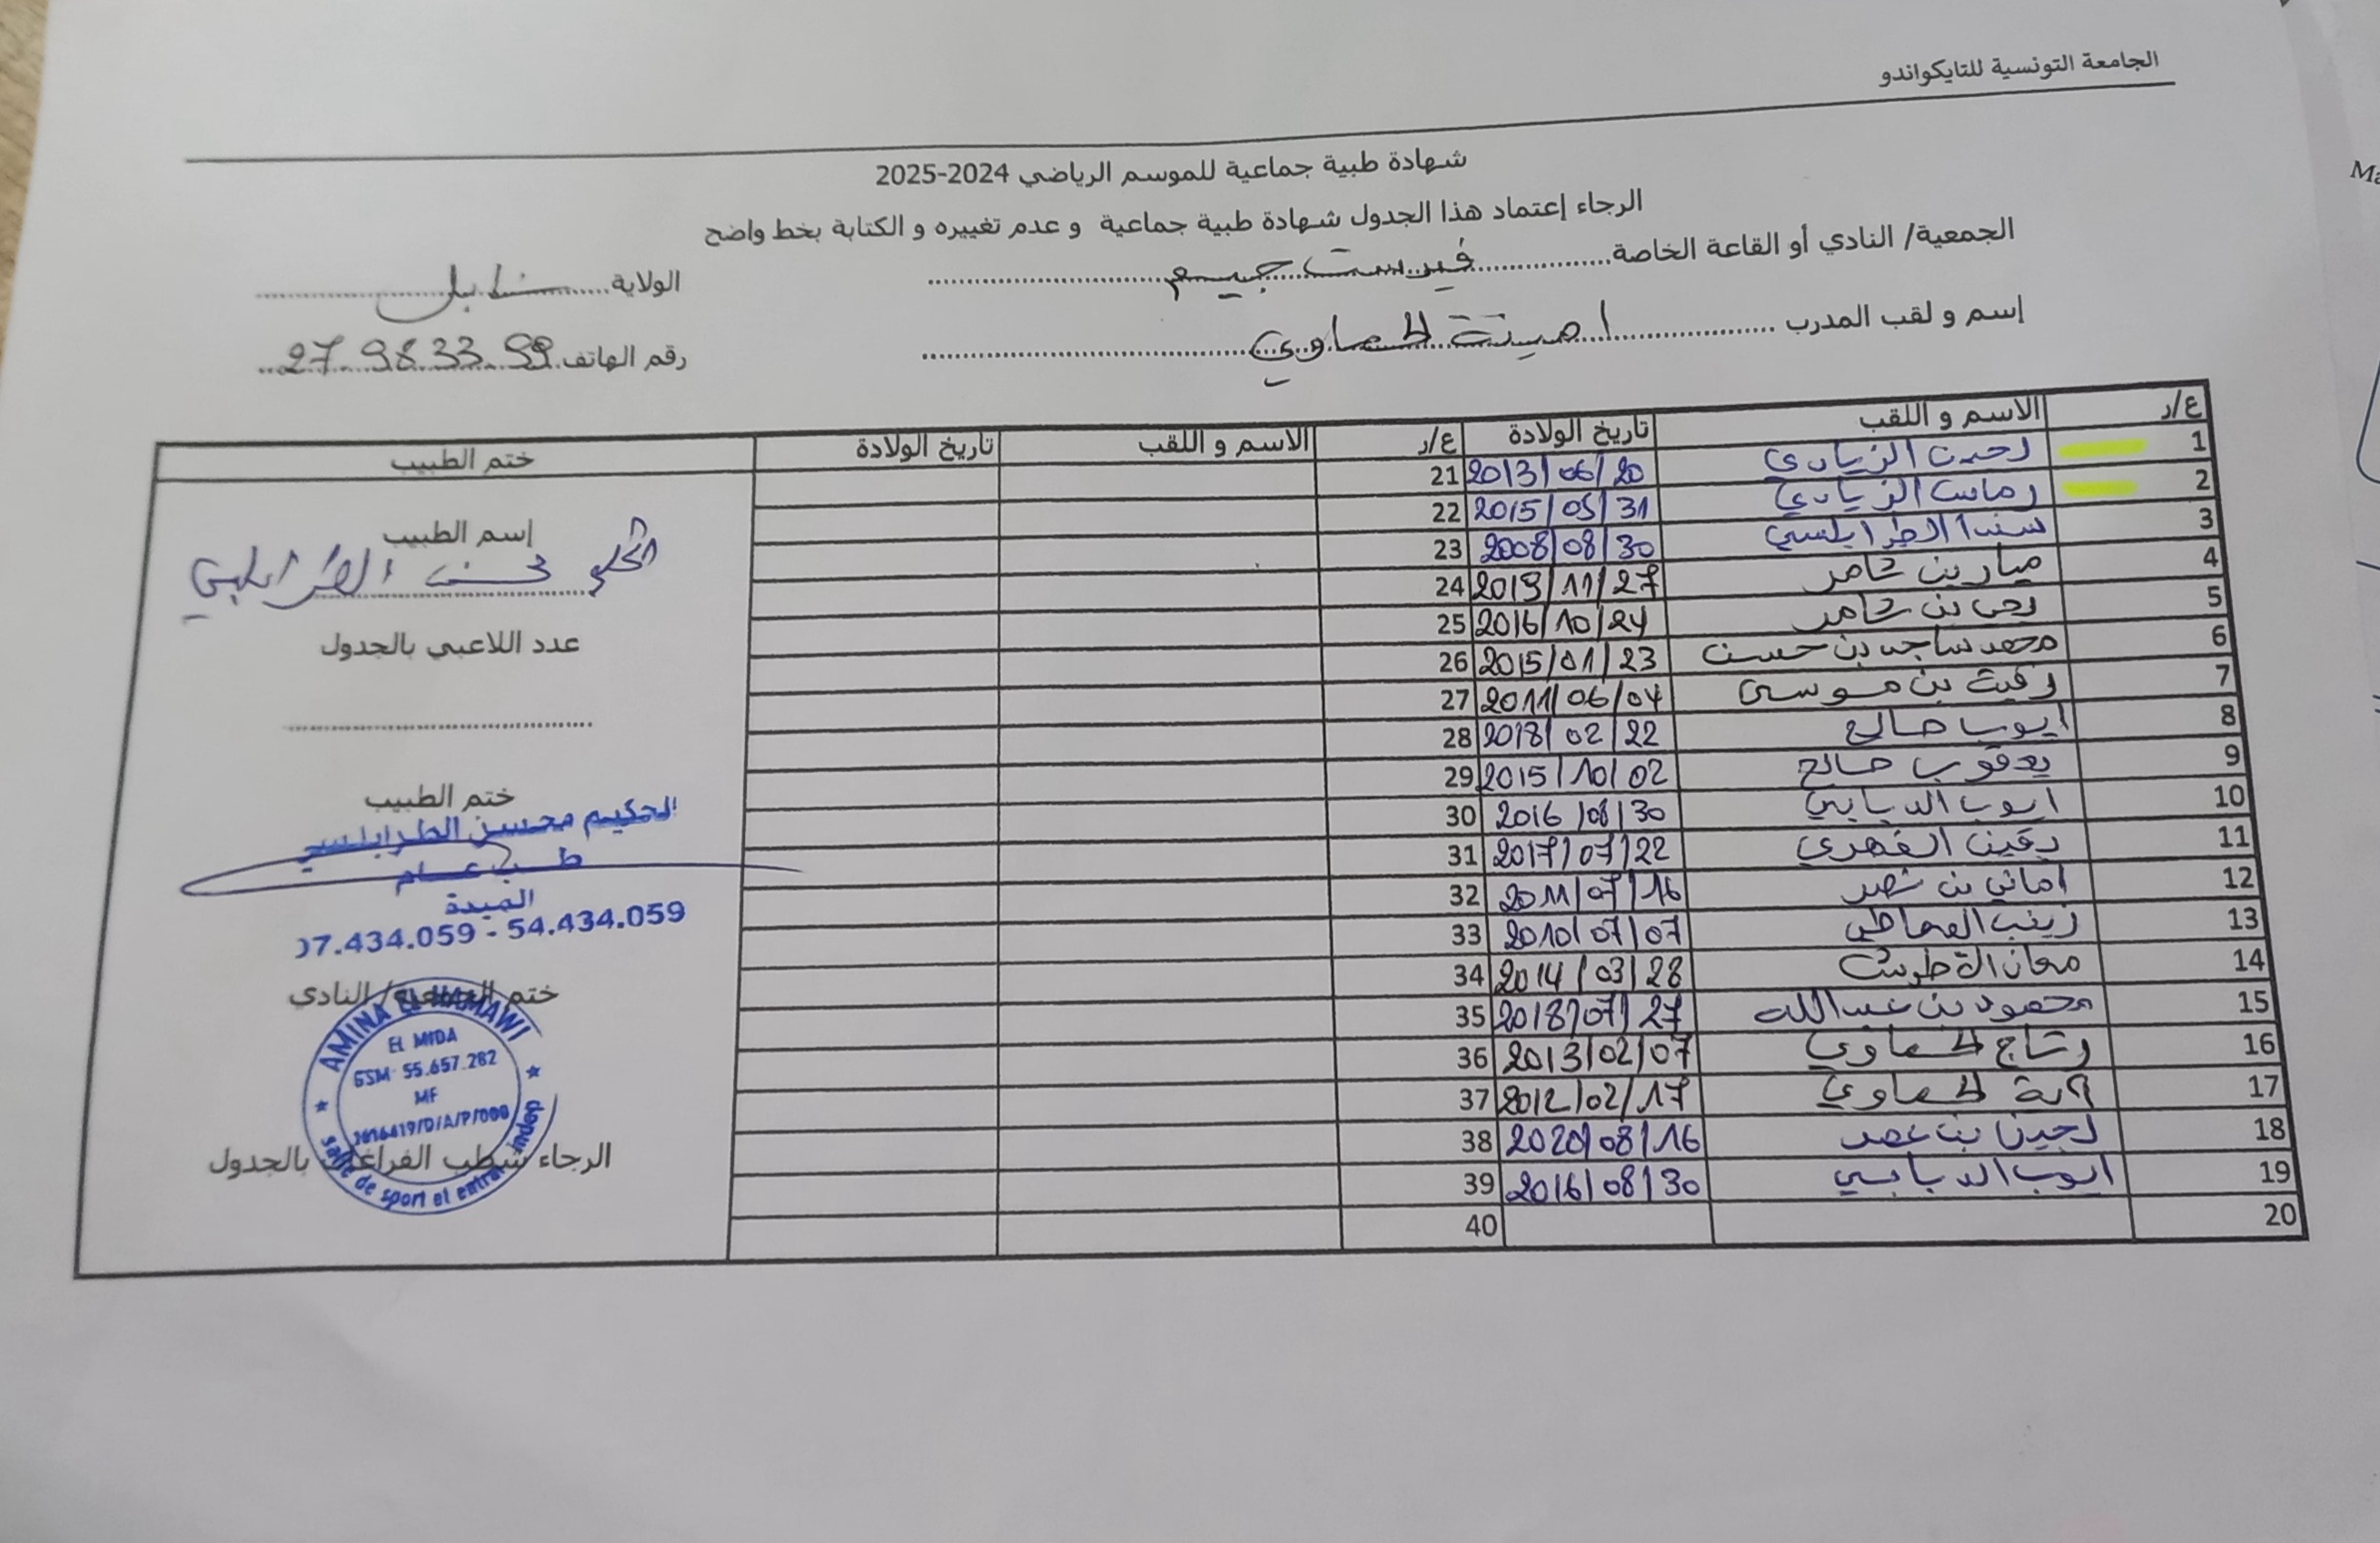 الجامعة التونسية للتايكواندو
شهادة طبية جماعية للموسم الرياضي 2024-2025
الرجاء إعتماد هذا الجدول شهادة طبية جماعية و عدم تغييره و الكتابة بخط واضح
الجمعية/ النادي أو القاعة الخاصة فيرست جيم الولاية نابل
إسم و لقب المدرب امينة الحماوي رقم الهاتف 27.983399
ع/ر الاسم و اللقب تاريخ الولادة ع/ر الاسم و اللقب تاريخ الولادة ختم الطبيب
1 الزيادي 2013/06/20 21
2 الزيادي 2015/05/31 22
3 سندا الطرابلسي 2008/08/30 23
4 ميار بن عامر 2013/11/27 24
5 يحي بن عامر 2016/10/24 25
6 محمد ساجد بن حسن 2015/01/23 26
7 بن موسى 2011/06/04 27
8 ايوب صالح 2018/02/22 28
9 يعقوب صالح 2015/10/02 29
10 ايوب الدبابي 2016/08/30 30
11 يقين 2017/07/22 31
12 اماني بن نصر 2011/07/16 32
13 زينب 2010/07/07 33
14 2014/03/28 34
15 محمود بن عبدالله 2018/07/27 35
16 رتاج الحماوي 2013/02/07 36
17 اية الحماوي 2012/02/17 37
18 لجين بن عمر 2020/08/16 38
19 ايوب الدبابسي 2016/08/30 39
20 40
إسم الطبيب
الحكيم محسن الطرابلسي
عدد اللاعبي بالجدول
ختم الطبيب
الحكيم محسن الطرابلسي
طب عام
الميدة
07.434.059 - 54.434.059
ختم الجمعية/ النادي
AMINA EL HAMAWI
El MIDA
GSM 55.657.282
MF
/D/A/P/000
salle de sport et entrai. indep
الرجاء شطب الفراغات بالجدول